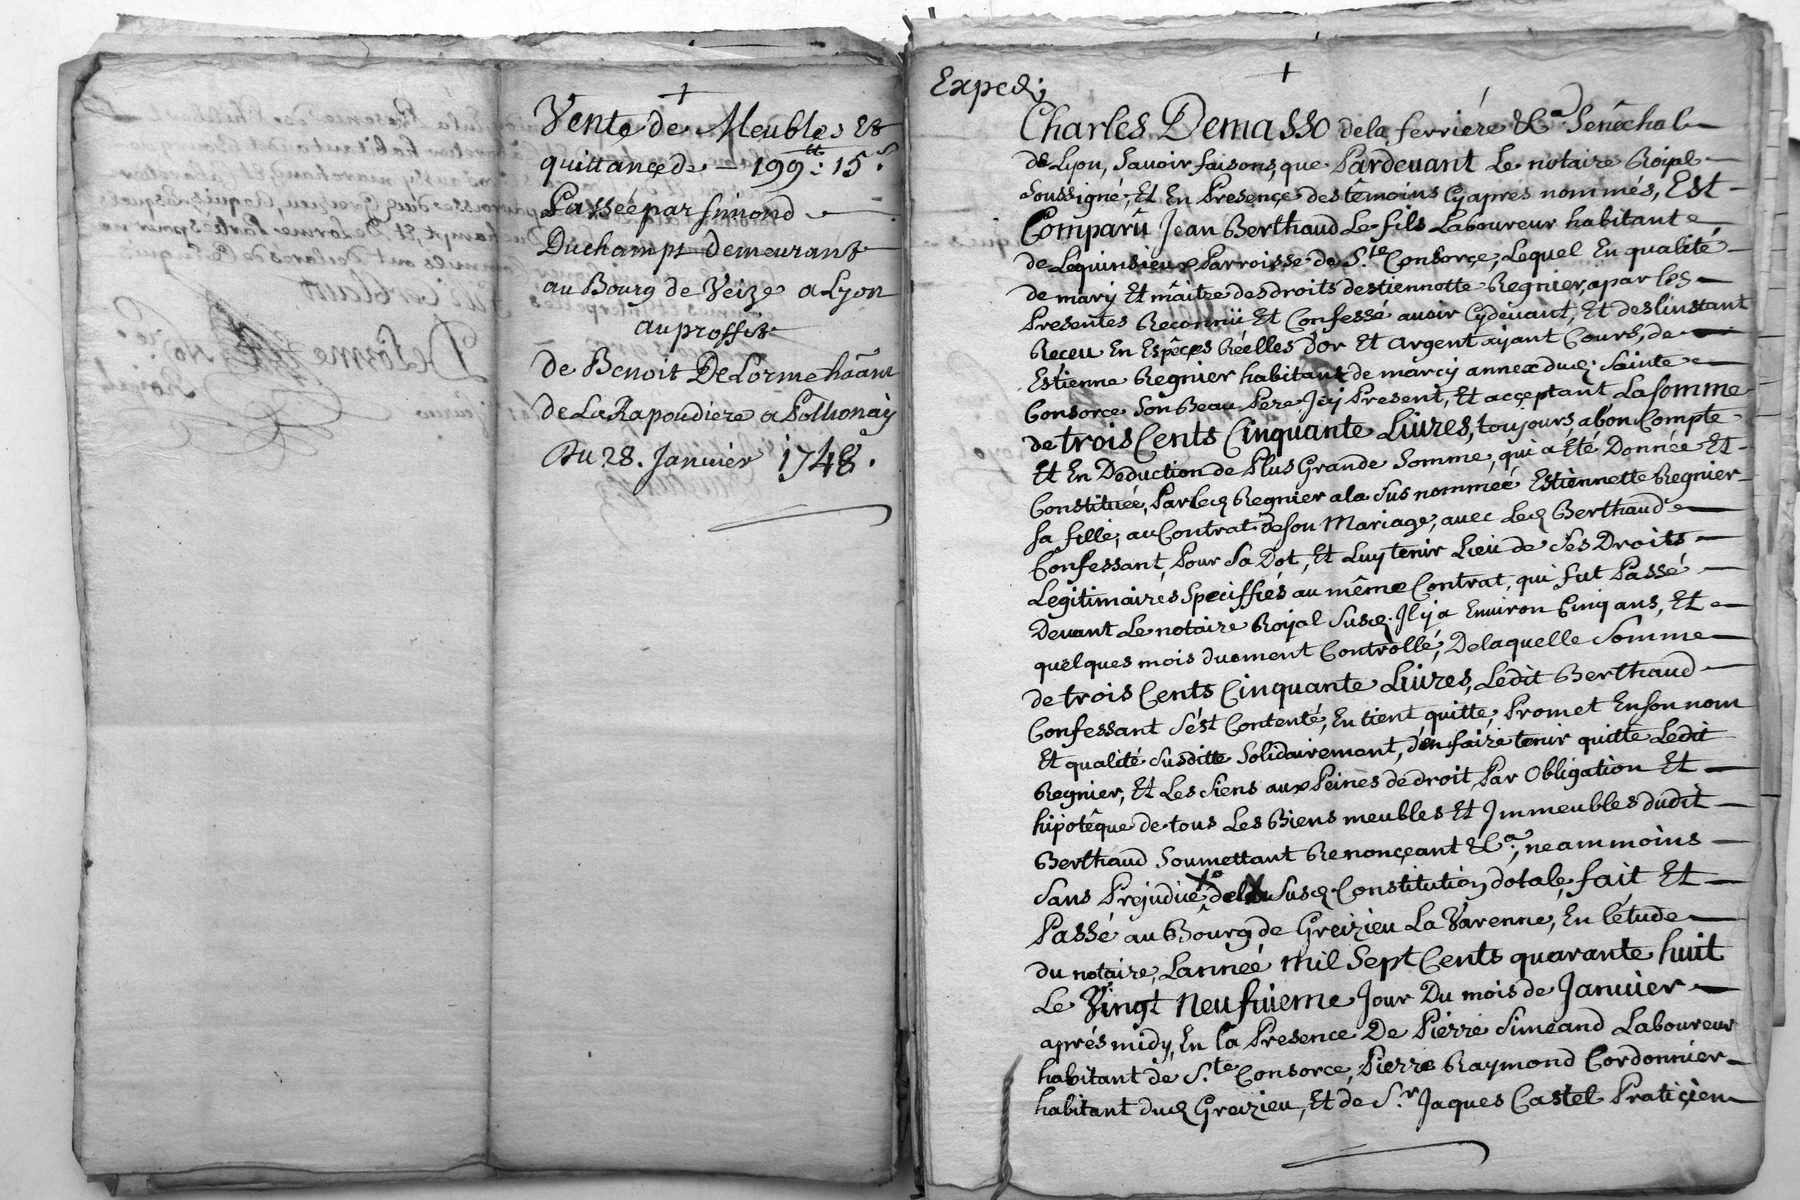 +
Vente de Meubles Et
quittance de - 199tt: 15s
Passée par Simond
Duchamps demeurant
au Bourg de Veize a Lyon
au proffit
de Benoit DeLorme ha̅ant
de La Rapoudiere a Pollionay
Du 28. Janvier 1748.
Delorme
No.re
Roial
Exped;
+
Charles Demasso dela ferriére &Ca Sénêchal
de Lyon, savoir faisons, que Pardevant Le notaire Roïal
soussigné, Et En Presençe des têmoins Cyapres nommés, Est
Comparû Jean Berthaud Le fils Laboureur habitant
de Lequinsieux Parroisse de S.te Consorçe, Lequel En qualité
de mary Et mâitre des droits destiennette Regnier, a par les
Presentes Reconnü Et Confessé avoir Cydevant, Et des linstant
Receu En Espêçes Réelles d'or Et argent aÿant Cours, de
Estienne Regnier habitant de marcy annex dud; Sainte
Consorce son Beau Pere Jcy Present, Et acceptant, La somme
de trois Cents Cinquante Livres, toujours a bon Compte
Et En Déduction de Plus Grande Somme, qui a Eté Donnée Et
Constituée, Par led Regnier a la sus nommée Estiennette Regnier
sa fille, au Contrat de son Mariage, avec Led Berthaud
Confessant, Pour Sa Dot, Et Luy tenir Lieu de Ses Droits
Legitimaires Speciffiés au même Contrat, qui fut Passé
Devant Le notaire Roÿal Susd. Jl y a Environ Cinq ans, Et
quelques mois duement Controllé, De laquelle Somme
de trois Cents Cinquante Livres, Ledit Berthaud
Confessant s'ést Contenté, En tient quitte, Promet En son nom
Et qualité Susditte Solidairement, d'en faire tenir quitte Ledit
Regnier, Et Les Siens aux Peines de droit, Par Obligation Et
hipotêque de tous Les Biens meubles Et Jmmeubles dudit
Berthaud Soumettant Renonçeant &Ca, neammoins
Sans Préjudice de la Susd Constitution dotale, fait Et
Passé au Bourg de Greizieu La Varenne, En l'étude
du notaire, Lanneé mil Sept Cents quarante huit
Le Vingt Neufvieme Jour Du mois de Janvier
aprés midy, En la Presence De Pierre Simeand Laboureur
habitant de S.te Consorce, Pierre Raymond Cordonnier
habitant dud Greizieu, Et de S.r Jaques Castel Praticien